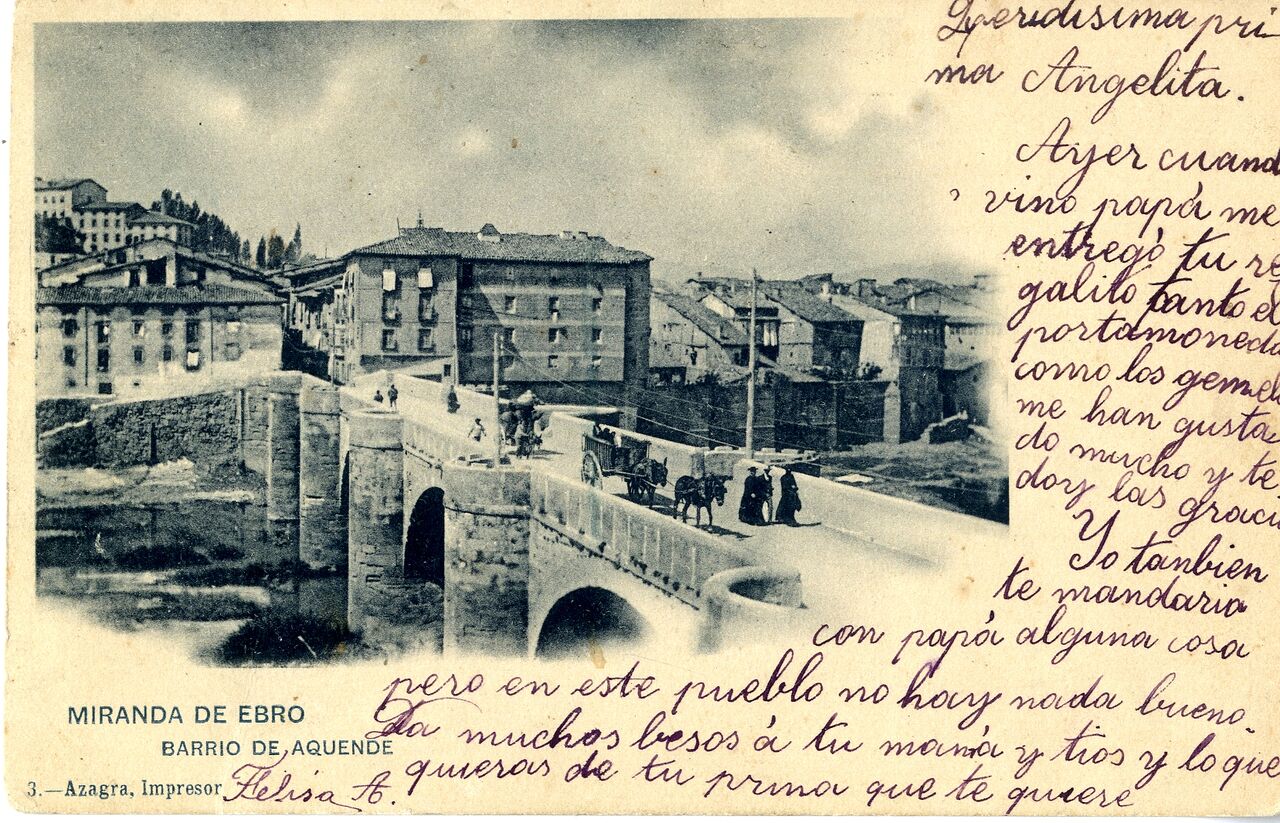 Queridisima pri
ma Angelita.
Ayer cuand
vino papá me
entregó tu re
galito tanto el
portamoneda
como los gemel
me han gusta
do mucho y te
doy las graci
Yo tanbien
te mandaria
con papá alguna cosa
pero en este pueblo no hay nada bueno.
Da muchos besos á tu mamá y tios y lo que
quieras de tu prima que te quiere
Felisa A.
MIRANDA DE EBRO
BARRIO DE AQUENDE
3.—Azagra, Impresor